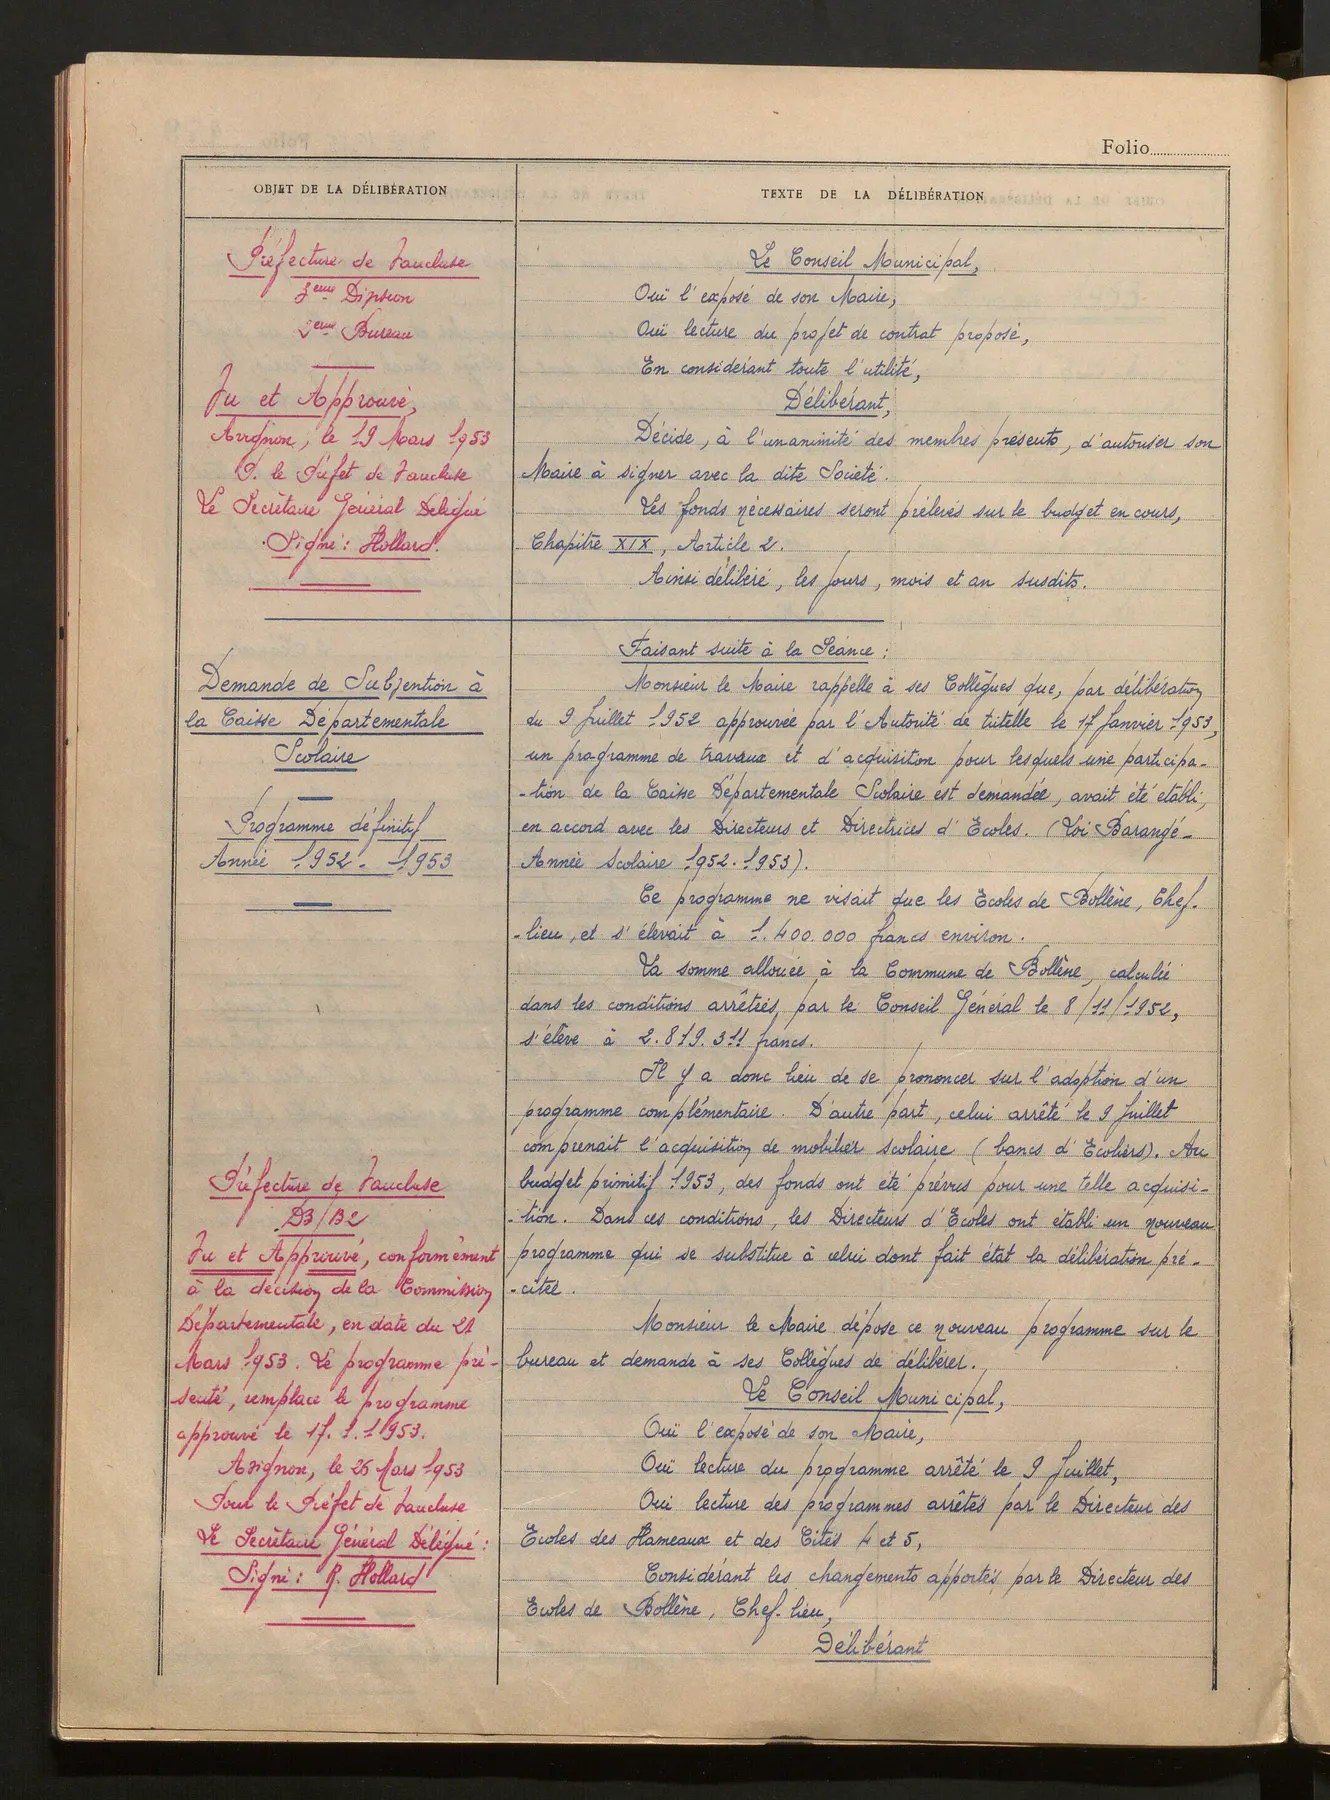 Folio
OBJET DE LA DÉLIBÉRATION
TEXTE DE LA DÉLIBÉRATION
Préfecture de Vaucluse
3eme Division
2eme Bureau
Vu et Approuvé,
Avignon, le 19 Mars 1953
P. le Préfet de Vaucluse
Le Secrétaire Général Délégué
Signé : Hollard.
Le Conseil Municipal,
Ouï l'exposé de son Maire,
Ouï lecture du projet de contrat proposé,
En considérant toute l'utilité,
Délibérant,
Décide, à l'unanimité des membres présents, d'autoriser son
Maire à signer avec la dite Société.
Les fonds nécessaires seront prélevés sur le budget en cours,
Chapitre XIX, Article 2.
Ainsi délibéré, les jours, mois et an susdits.
Demande de Subvention à
la Caisse Départementale
Scolaire
Programme définitif
Année 1952 - 1953
Faisant suite à la Séance :
Monsieur le Maire rappelle à ses Collègues que, par délibération
du 9 Juillet 1952 approuvée par l'Autorité de tutelle le 17 Janvier 1953,
un programme de travaux et d'acquisition pour lesquels une participa-
-tion de la Caisse Départementale Scolaire est demandée, avait été établi,
en accord avec les Directeurs et Directrices d'Ecoles. (Loi Barangé -
Année Scolaire 1952-1953).
Ce programme ne visait que les Ecoles de Bollène, Chef-
-lieu, et s'élevait à 1.400.000 francs environ.
La somme allouée à la Commune de Bollène, calculée
dans les conditions arrêtées, par le Conseil Général le 8/11/1952,
s'élève à 2.819.311 francs.
Il y a donc lieu de se prononcer sur l'adoption d'un
programme complémentaire. D'autre part, celui arrêté le 9 Juillet
comprenait l'acquisition de mobilier scolaire (bancs d'Ecoliers). Au
budget primitif 1953, des fonds ont été prévus pour une telle acquisi-
-tion. Dans ces conditions, les Directeurs d'Ecoles ont établi un nouveau
programme qui se substitue à celui dont fait état la délibération pré-
-citée.
Monsieur le Maire dépose ce nouveau programme sur le
bureau et demande à ses Collègues de délibérer.
Le Conseil Municipal,
Ouï l'exposé de son Maire,
Ouï lecture du programme arrêté le 9 Juillet,
Ouï lecture des programmes arrêtés par le Directeur des
Ecoles des Hameaux et des Cités 4 et 5,
Considérant les changements apportés par le Directeur des
Ecoles de Bollène, Chef-lieu,
Délibérant
Préfecture de Vaucluse
D3/B2
Vu et Approuvé, conformément
à la décision de la Commission
Départementale, en date du 21
Mars 1953. Le programme pré-
senté, remplace le programme
approuvé le 17.1.1953.
Avignon, le 26 Mars 1953
Pour le Préfet de Vaucluse
Le Secrétaire Général Délégué :
Signé : R. Hollard